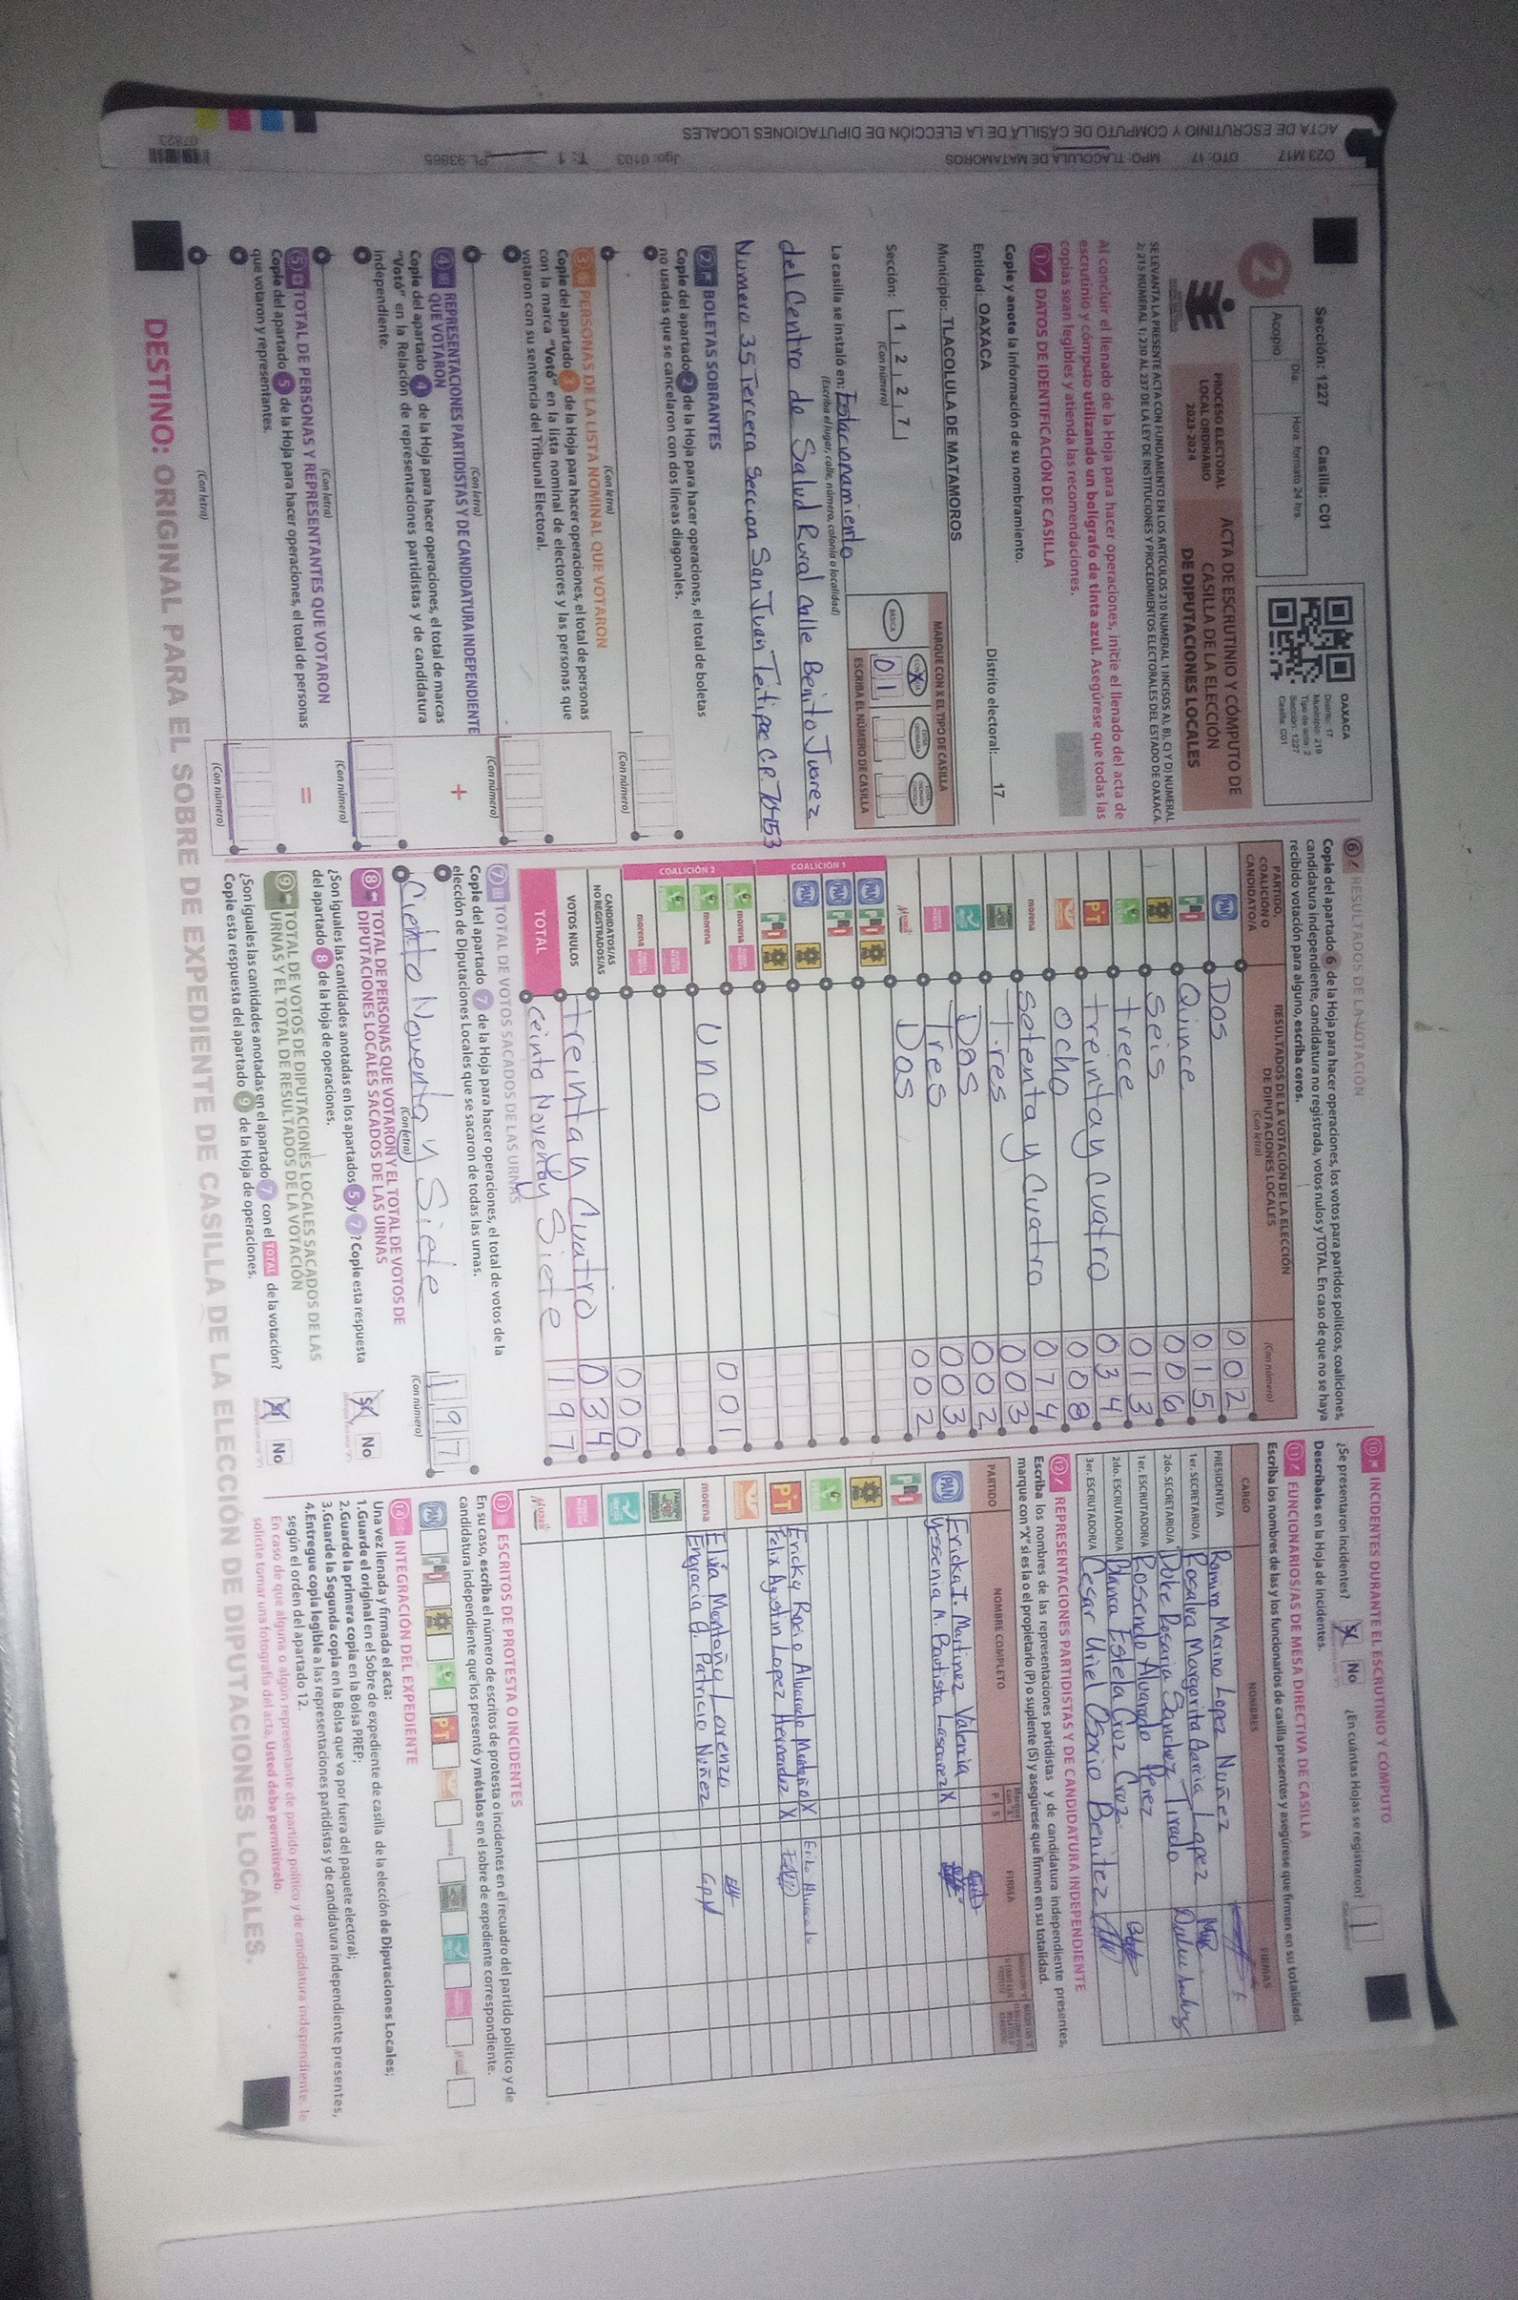 ACTA DE ESCRUTINIO Y CÓMPUTO DE CASILLA DE LA ELECCIÓN DE DIPUTACIONES LOCALES
O23 M17 DTO: 17 MPO: TLACOLULA DE MATAMOROS Jgo: 0103 T: 1 PL 93865
07823
Sección: 1227 Casilla: C01
2
Acopio
Día:
Hora: formato 24 hrs.
OAXACA
Distrito: 17
Sección: 1227
Casilla: C01
PROCESO ELECTORAL
LOCAL ORDINARIO
2023-2024
ACTA DE ESCRUTINIO Y CÓMPUTO DE
CASILLA DE LA ELECCIÓN
DE DIPUTACIONES LOCALES
SE LEVANTA LA PRESENTE ACTA CON FUNDAMENTO EN LOS ARTÍCULOS 210 NUMERAL 1 INCISOS A), B), C) Y D) NUMERAL
2; 215 NUMERAL 1; 230 AL 237 DE LA LEY DE INSTITUCIONES Y PROCEDIMIENTOS ELECTORALES DEL ESTADO DE OAXACA.
Al concluir el llenado de la Hoja para hacer operaciones, inicie el llenado del acta de
escrutinio y cómputo utilizando un bolígrafo de tinta azul. Asegúrese que todas las
copias sean legibles y atienda las recomendaciones.
1 DATOS DE IDENTIFICACIÓN DE CASILLA
Copie y anote la información de su nombramiento.
Entidad: OAXACA Distrito electoral: 17
Municipio: TLACOLULA DE MATAMOROS
Sección: 1 2 2 7
(Con número)
MARQUE CON X EL TIPO DE CASILLA
BÁSICA
X
ESCRIBA EL NÚMERO DE CASILLA
0 1
La casilla se instaló en: Estacionamiento
(Escriba el lugar, calle, número, colonia o localidad)
del Centro de Salud Rural calle Benito Juarez
Numero 35 Tercera Seccion San Juan Teitipac C.P. 70453
2 BOLETAS SOBRANTES
Copie del apartado 2 de la Hoja para hacer operaciones, el total de boletas
no usadas que se cancelaron con dos líneas diagonales.
(Con letra) (Con número)
3 PERSONAS DE LA LISTA NOMINAL QUE VOTARON
Copie del apartado 3 de la Hoja para hacer operaciones, el total de personas
con la marca "Votó" en la lista nominal de electores y las personas que
votaron con su sentencia del Tribunal Electoral.
(Con letra) (Con número)
+
4 REPRESENTACIONES PARTIDISTAS Y DE CANDIDATURA INDEPENDIENTE
QUE VOTARON
Copie del apartado 4 de la Hoja para hacer operaciones, el total de marcas
"Votó" en la Relación de representaciones partidistas y de candidatura
independiente.
(Con letra) (Con número)
=
5 TOTAL DE PERSONAS Y REPRESENTANTES QUE VOTARON
Copie del apartado 5 de la Hoja para hacer operaciones, el total de personas
que votaron y representantes.
(Con letra) (Con número)
6 RESULTADOS DE LA VOTACIÓN
Copie del apartado 6 de la Hoja para hacer operaciones, los votos para partidos políticos, coaliciones,
candidatura independiente, candidatura no registrada, votos nulos y TOTAL. En caso de que no se haya
recibido votación para alguno, escriba ceros.
PARTIDO,
COALICIÓN O
CANDIDATO/A
RESULTADOS DE LA VOTACIÓN DE LA ELECCIÓN
DE DIPUTACIONES LOCALES
(Con letra)
(Con número)
PAN Dos 002
PRI Quince 015
Seis 006
trece 013
PT treinta y cuatro 034
Ocho 008
morena Setenta y Cuatro 074
Tres 003
Dos 002
Tres 003
Dos 002
COALICIÓN 1
PAN PRI
PAN PRI
PAN
PRI
COALICIÓN 2
morena
morena Uno 001
morena
CANDIDATOS/AS
NO REGISTRADOS/AS 000
VOTOS NULOS treinta y Cuatro 034
TOTAL Ceinto Noventa y Siete 197
7 TOTAL DE VOTOS SACADOS DE LAS URNAS
Copie del apartado 7 de la Hoja para hacer operaciones, el total de votos de la
elección de Diputaciones Locales que se sacaron de todas las urnas.
Ciento Noventa y Siete 197
(Con letra) (Con número)
8 TOTAL DE PERSONAS QUE VOTARON Y EL TOTAL DE VOTOS DE
DIPUTACIONES LOCALES SACADOS DE LAS URNAS
¿Son iguales las cantidades anotadas en los apartados 5 y 7? Copie esta respuesta
del apartado 8 de la Hoja de operaciones.
Sí No
9 TOTAL DE VOTOS DE DIPUTACIONES LOCALES SACADOS DE LAS
URNAS Y EL TOTAL DE RESULTADOS DE LA VOTACIÓN
¿Son iguales las cantidades anotadas en el apartado 7 con el TOTAL de la votación?
Copie esta respuesta del apartado 9 de la Hoja de operaciones.
Sí No
10 INCIDENTES DURANTE EL ESCRUTINIO Y CÓMPUTO
¿Se presentaron incidentes? Sí No ¿En cuántas Hojas se registraron? 1
Descríbalos en la Hoja de incidentes.
11 FUNCIONARIOS/AS DE MESA DIRECTIVA DE CASILLA
Escriba los nombres de las y los funcionarios de casilla presentes y asegúrese que firmen en su totalidad.
CARGO NOMBRES FIRMAS
PRESIDENTE/A Ramiro Marino Lopez Nuñez
1er. SECRETARIO/A Rosalva Margarita Garcia Lopez
2do. SECRETARIO/A Dulce Rosario Sanchez Tirado
1er. ESCRUTADOR/A Rosendo Alvarado Perez
2do. ESCRUTADOR/A Blanca Estela Cruz Cruz
3er. ESCRUTADOR/A Cesar Uriel Osorio Benitez
12 REPRESENTACIONES PARTIDISTAS Y DE CANDIDATURA INDEPENDIENTE
Escriba los nombres de las representaciones partidistas y de candidatura independiente presentes,
marque con "X" si es la o el propietario (P) o suplente (S) y asegúrese que firmen en su totalidad.
PARTIDO NOMBRE COMPLETO P S FIRMA
PAN Ericka I. Martinez Valencia
Yessenia M. Bautista Lascarez X
PRI
PT Ericka Rocio Alvarado Montaño X
Felix Agustin Lopez Hernandez X
morena Elvia Montaño Lorenzo
Engracia G. Patricio Nuñez GPN
13 ESCRITOS DE PROTESTA O INCIDENTES
En su caso, escriba el número de escritos de protesta o incidentes en el recuadro del partido político y de
candidatura independiente que los presentó y métalos en el sobre de expediente correspondiente.
PAN PRI PT
14 INTEGRACIÓN DEL EXPEDIENTE
Una vez llenada y firmada el acta:
1. Guarde el original en el Sobre de expediente de casilla de la elección de Diputaciones Locales;
2. Guarde la primera copia en la Bolsa PREP;
3. Guarde la Segunda copia en la Bolsa que va por fuera del paquete electoral;
4. Entregue copia legible a las representaciones partidistas y de candidatura independiente presentes,
según el orden del apartado 12.
En caso de que alguna o algún representante de partido político y de candidatura independiente, le
solicite tomar una fotografía del acta, Usted debe permitírselo.
DESTINO: ORIGINAL PARA EL SOBRE DE EXPEDIENTE DE CASILLA DE LA ELECCIÓN DE DIPUTACIONES LOCALES.